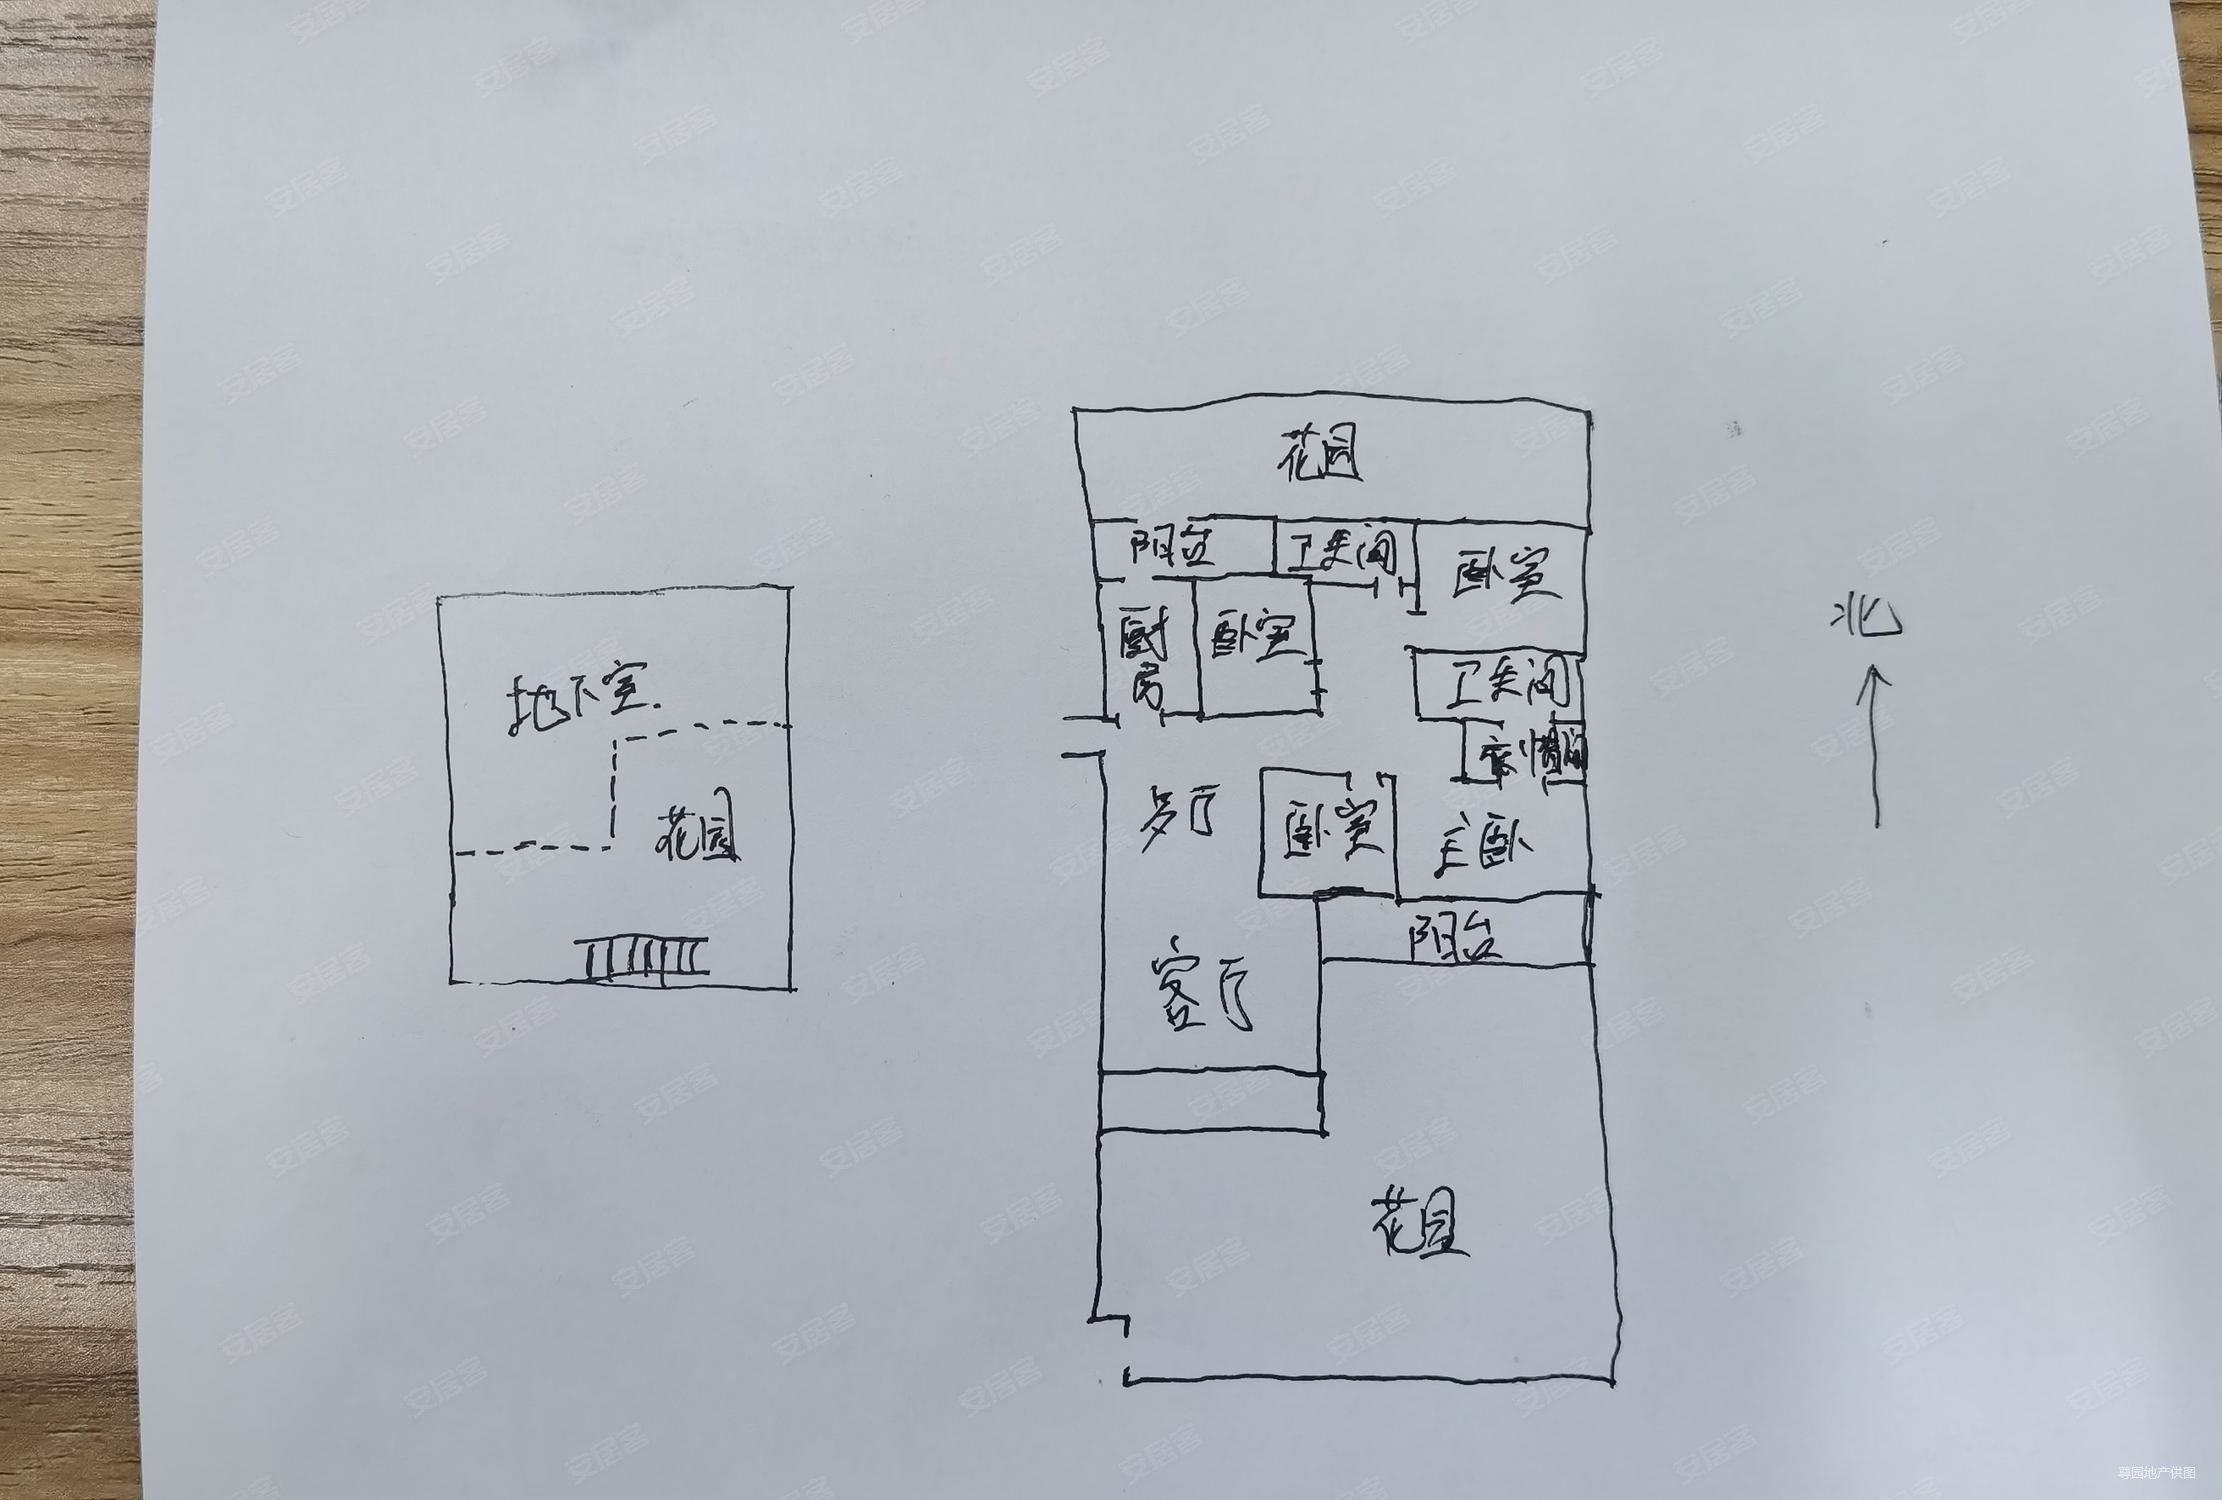 花园
阳台
卫生间
卧室
厨房
卧室
北
卫生间
衣帽间
地下室
花园
餐厅
卧室
主卧
阳台
客厅
花园
安居客
尊园地产供图